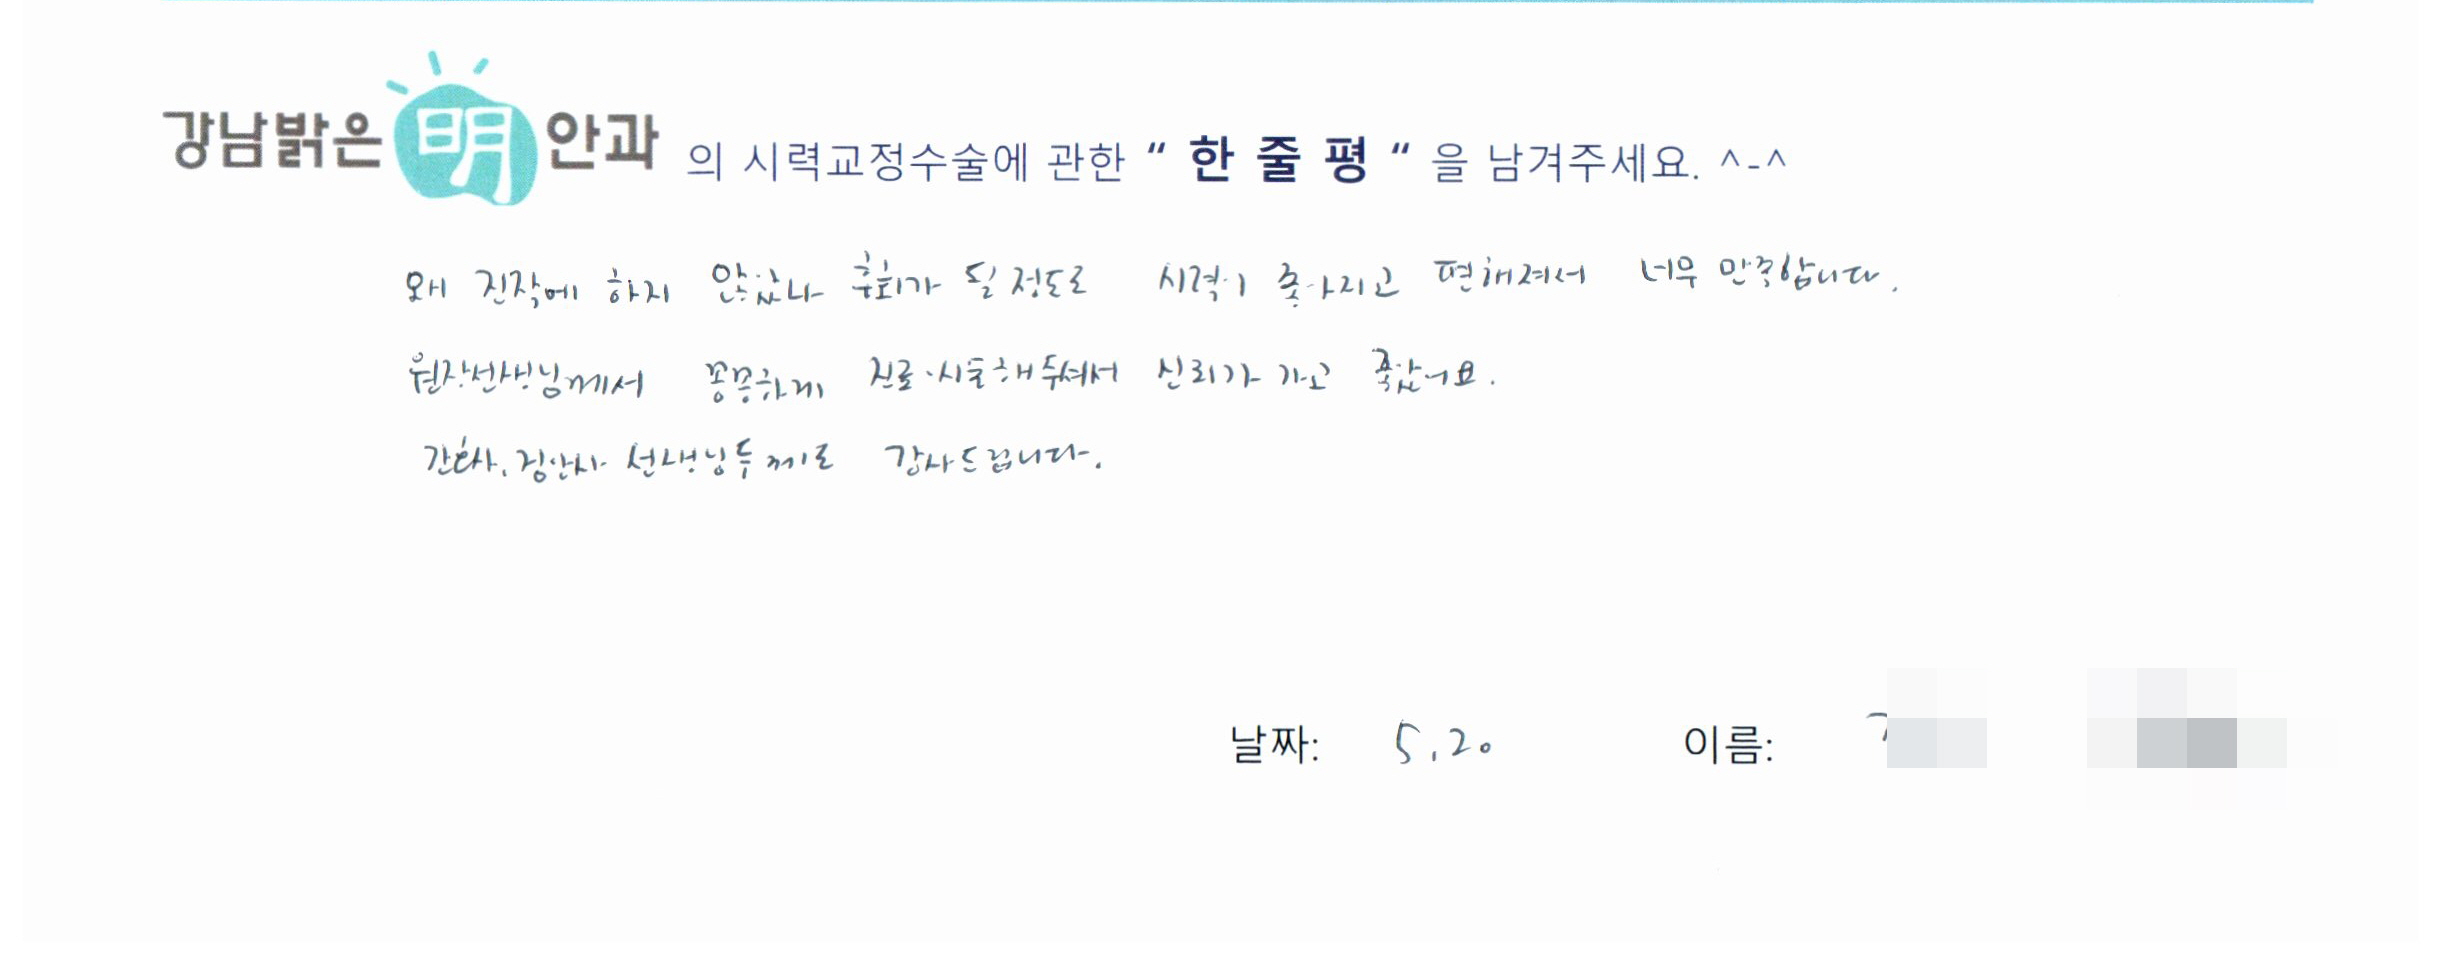 강남밝은明안과 의 시력교정수술에 관한 “ 한 줄 평 “ 을 남겨주세요. ^-^
왜 진작에 하지 않았나 후회가 될 정도로 시력이 좋아지고 편해져서 너무 만족합니다.
원장선생님께서 꼼꼼하게 진료·시술해주셔서 신뢰가 가고 좋았어요.
간호사, 검안사 선생님들께도 감사드립니다.
날짜: 5.20 이름: